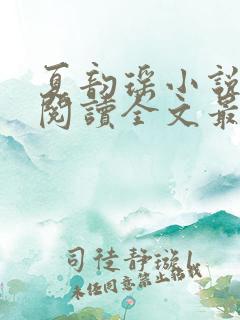 夏韵瑶小说
阅读全文最
司徒静璇l
未经同意禁止转载